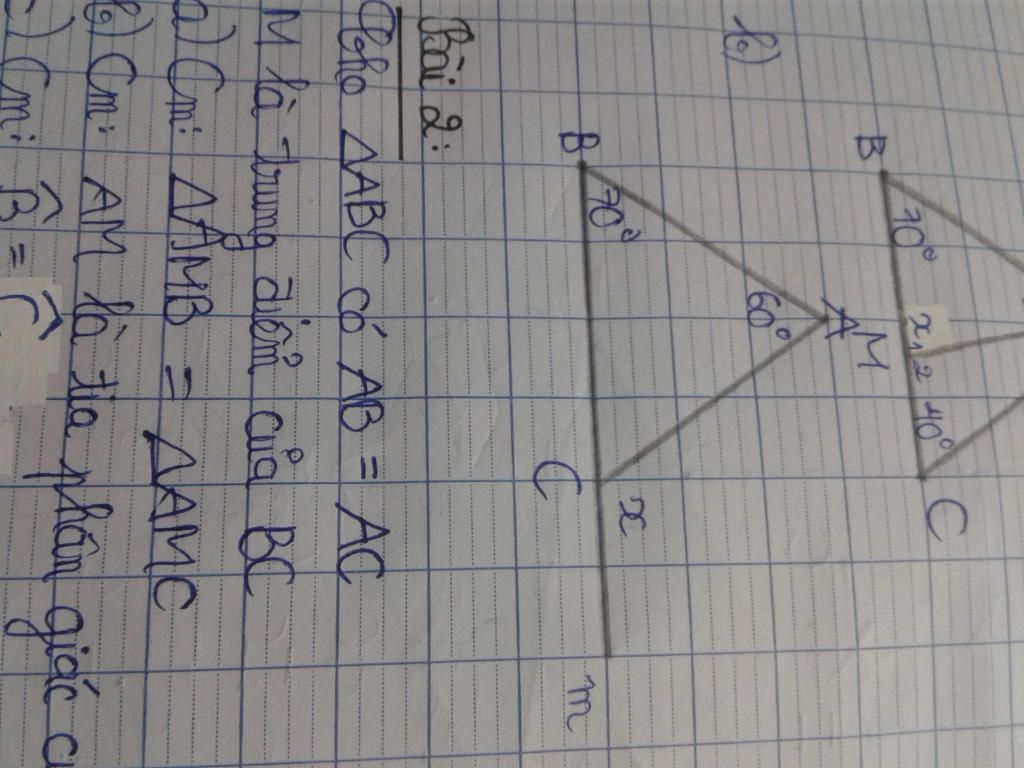 B 70° x₁ 2 40° C
M
b)
A
60°
B 70° x
C m
Bài 2:
Cho ΔABC có AB = AC
M là trung điểm của BC
a) Cm: ΔAMB = ΔAMC
b) Cm: AM là tia phân giác
c) Cm: B̂ = Ĉ